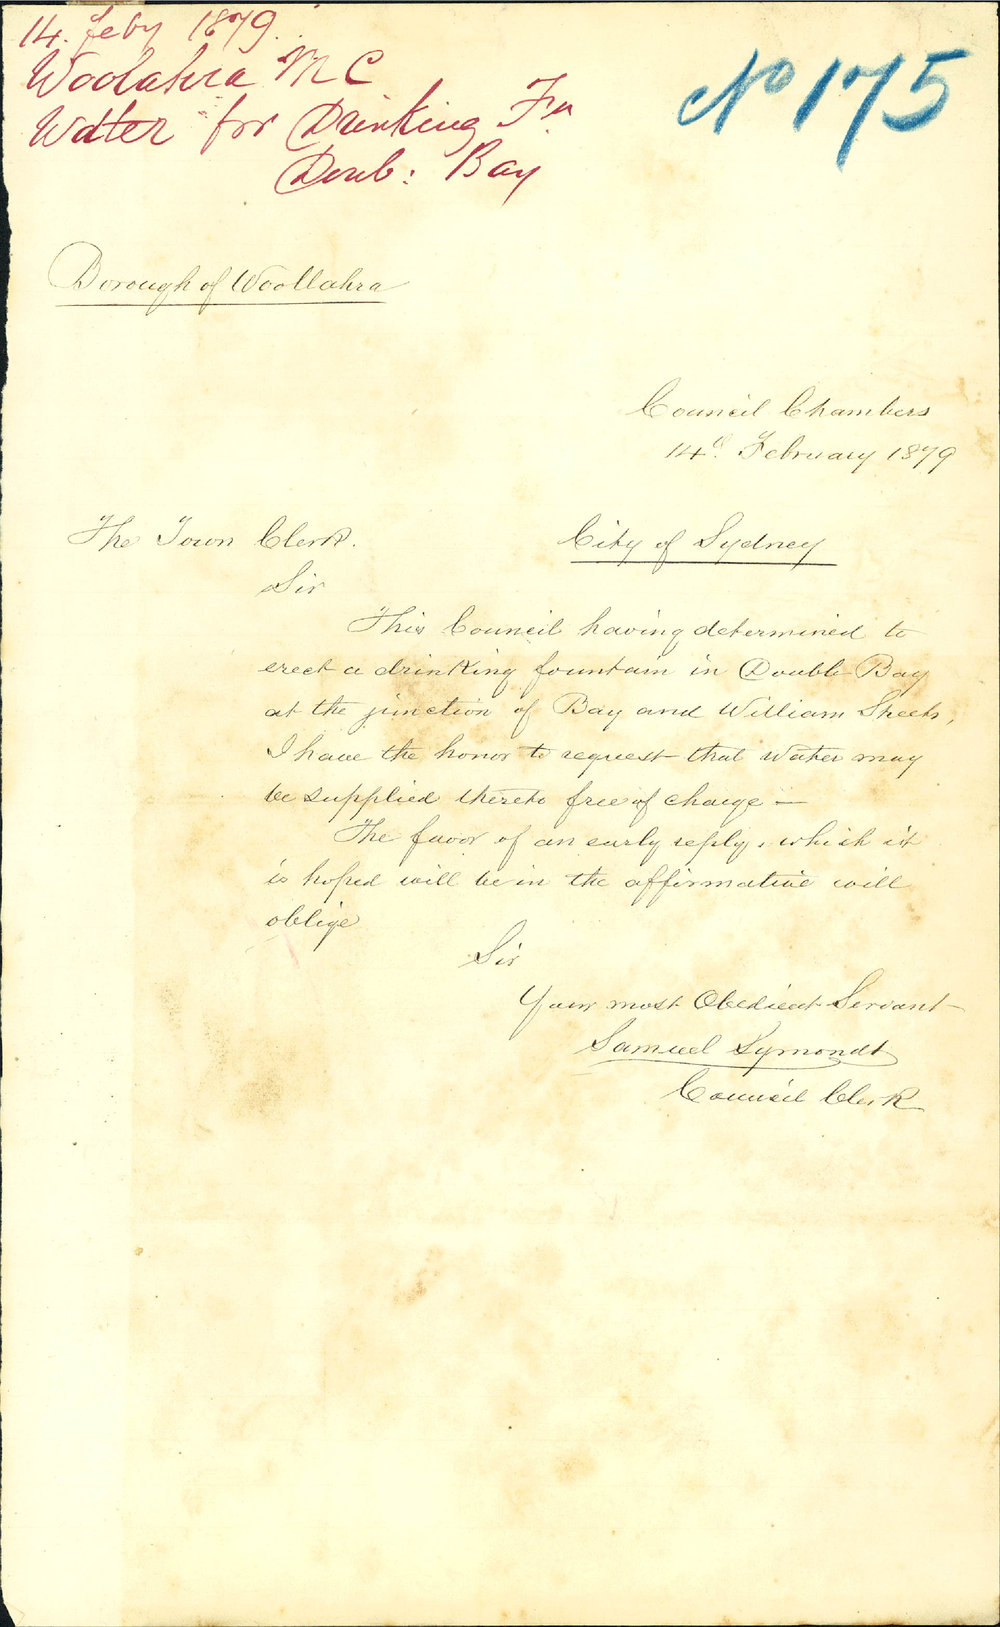 14. Feby 1879.
Woolahra M C
No 175
Water for Drinking Fn
Doub: Bay
Borough of Woollahra
Council Chambers
14th February 1879
The Town Clerk.
City of Sydney
Sir
This Council having determined to
erect a drinking fountain in Double Bay
at the junction of Bay and William Streets,
I have the honor to request that water may
be supplied thereto free of charge —
The favor of an early reply, which it
is hoped will be in the affirmative will
oblige
Sir
Your most Obedient Servant
Samuel Symonds
Council Clerk